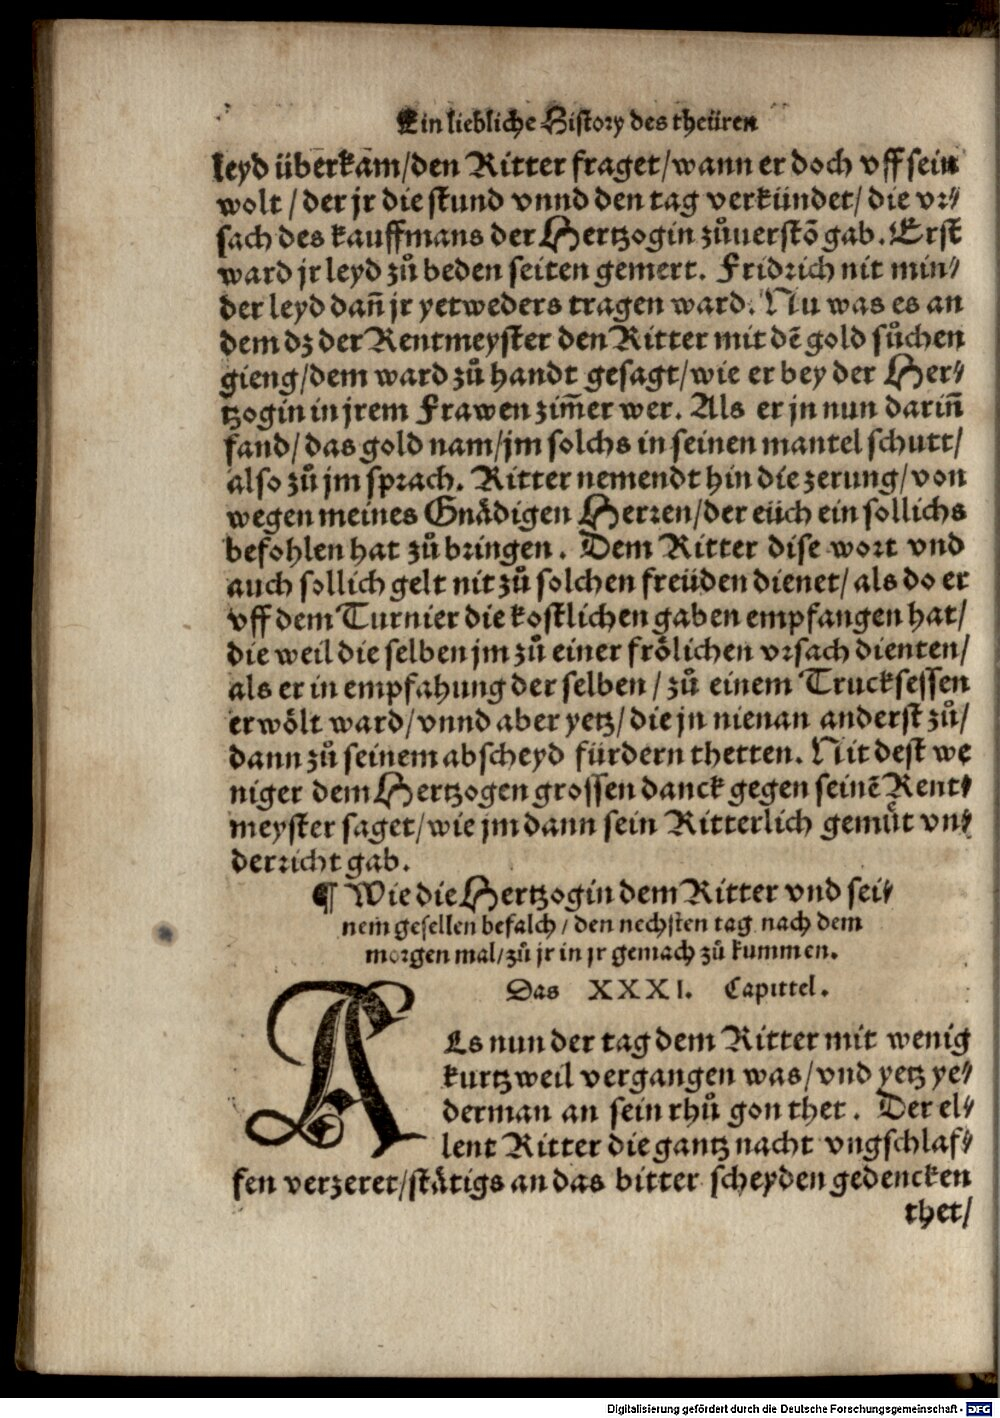 Ein liebliche History des theüren
leyd überkam/den Ritter fraget/wann er doch vff sein
wolt / der jr die stund vnnd den tag verkündet/ die vr⸗
sach des kauffmans der Hertzogin zůuerstõ gab. Erst
ward jr leyd zů beden seiten gemert. Fridrich nit min⸗
der leyd dañ jr yetweders tragen ward. Nu was es an
dem dz der Rentmeyster den Ritter mit dẽ gold sůchen
gieng/dem ward zů handt gesagt/wie er bey der Her⸗
tzogin in jrem Frawen zim̃er wer. Als er jn nun dariñ
fand/das gold nam/jm solchs in seinen mantel schutt/
also zů jm sprach. Ritter nemendt hin die zerung/von
wegen meines Gnådigen Herren/der eüch ein sollichs
befohlen hat zů bringen. Dem Ritter dise wort vnd
auch sollich gelt nit zů solchen freüden dienet/ als do er
vff dem Turnier die kostlichen gaben empfangen hat/
die weil die selben jm zů einer frölichen vrsach dienten/
als er in empfahung der selben / zů einem Trucksessen
erwölt ward/vnnd aber yetz/die jn nienan anderst zů/
dann zů seinem abscheyd fürdern thetten. Nit dest we
niger dem Hertzogen grossen danck gegen seinẽ Rent⸗
meyster saget/wie jm dann sein Ritterlich gemüt vn⸗
derricht gab.
¶ Wie die Hertzogin dem Ritter vnd sei⸗
nem gesellen befalch / den nechsten tag nach dem
morgen mal/zů jr in jr gemach zů kummen.
Das XXXI. Capittel.
ALs nun der tag dem Ritter mit wenig
kurtzweil vergangen was/vnd yetz ye⸗
derman an sein rhů gon thet. Der el⸗
lent Ritter die gantz nacht vngschlaf⸗
fen verzeret/ståtigs an das bitter scheyden gedencken
thet/
Digitalisierung gefördert durch die Deutsche Forschungsgemeinschaft - DFG